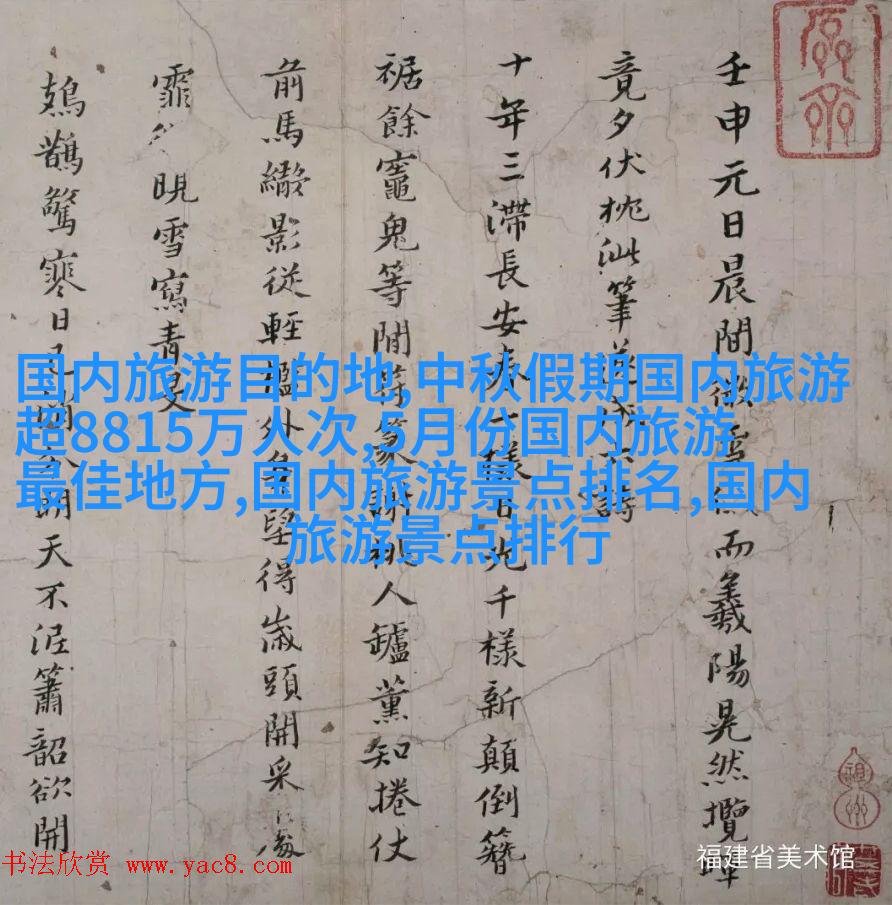 壬申元日晨間微雪而羲陽晃然攬
竟夕伏枕泚筆詩
十年三滯長安一樣千樣新顛倒簪
裾餘竈鬼等閒篆謝人鑪薰知捲仗
前馬影從輕外望得歲頭開采
霏晛雪寫青旻
鳷鵲驚寒日天不涯簫韶欲開
国内旅游目的地,中秋假期国内旅游
超8815万人次,5月份国内旅游
最佳地方,国内旅游景点排名,国内
旅游景点排行
书法欣赏 www.yac8.com
福建省美术馆